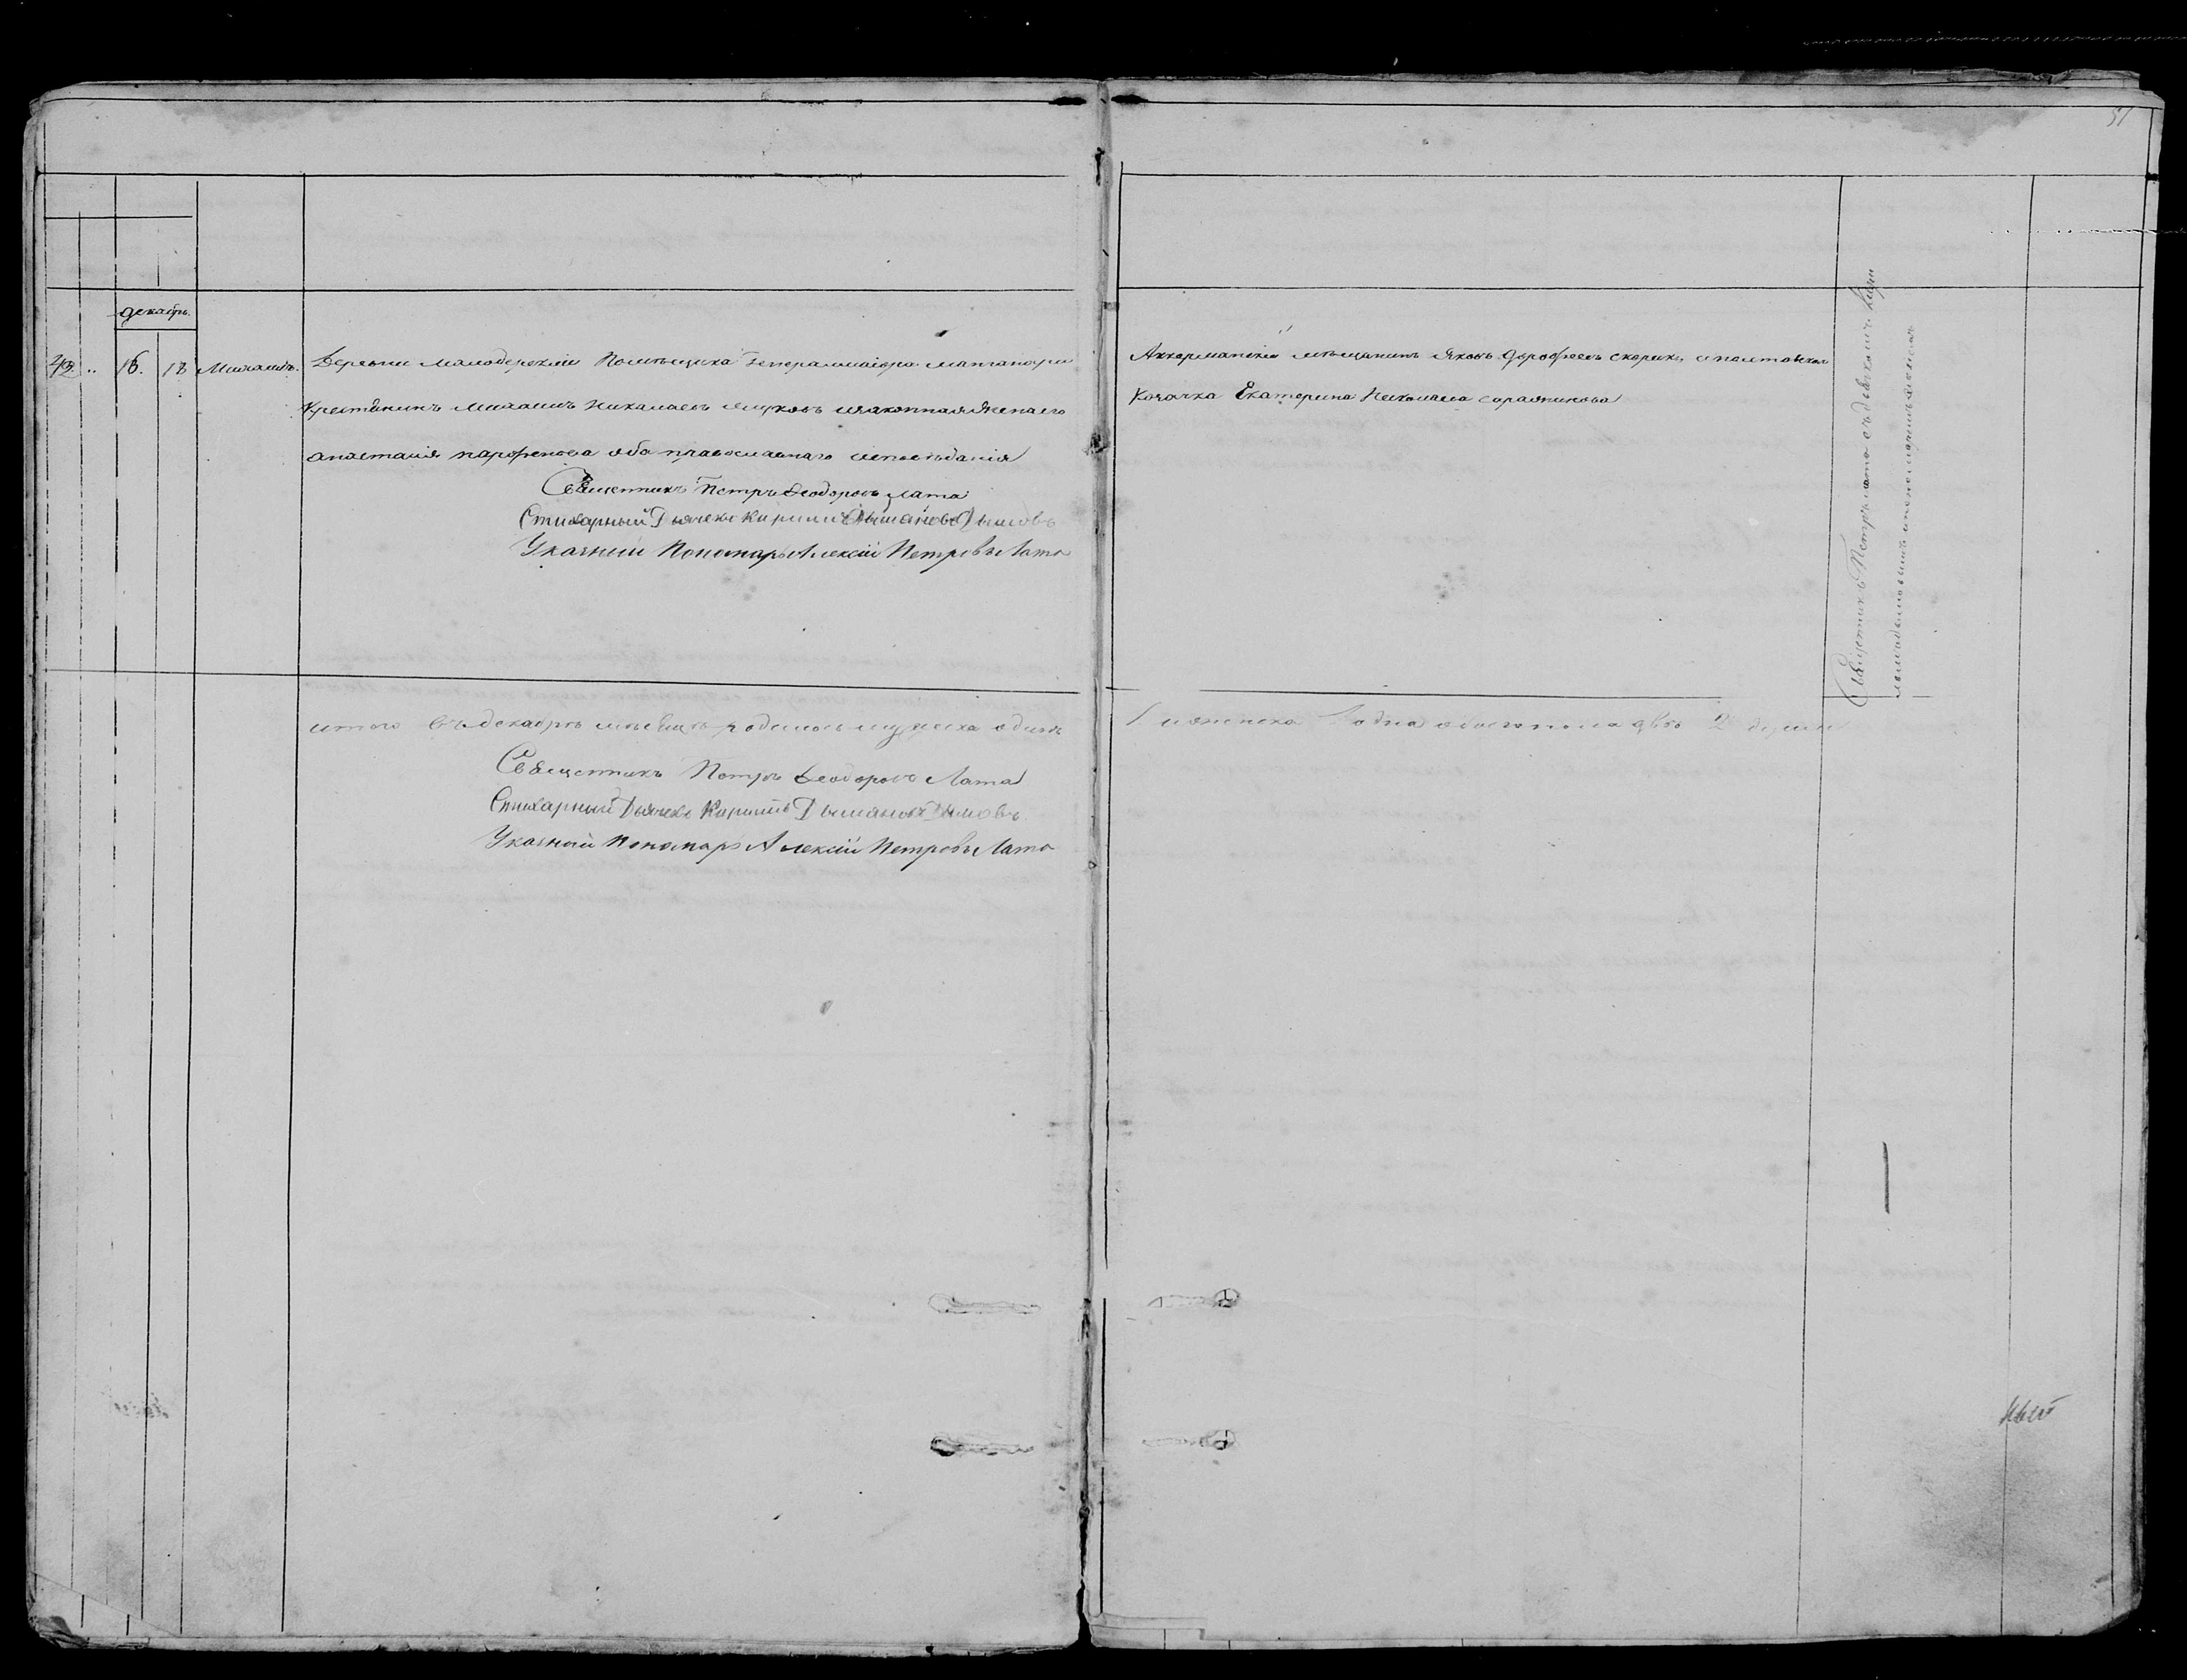 51
декабрь.
42 .. 16. 18 Михаилъ. Деревни малодерскии Помѣщика Генералмаіора
Крестянинъ Михаилъ Николаевъ изаконная жена его
анастасія парфенова оба православнаго исповѣданія
Священникъ Петръ Ѳеодоровъ Лата
Стихарный Дьячекъ Кирилъ Дымовъ
Указный Пономарь Алексій Петровъ Лата
Аккерманскій мѣщанинъ Яковъ дорофеевъ скорикъ и полтавская
Козачка Екатерина Николаева
Священникъ Петръ Лата съ дьячкомъ
итого въ декабрѣ мѣсяцѣ родилось мужеска одинъ
1 и женска 1 одна обоего пола двѣ 2 души
Священникъ Петръ Ѳеодоровъ Лата
Стихарный Дьячекъ Кирилъ Дымовъ
Указный Пономарь Алексій Петровъ Лата